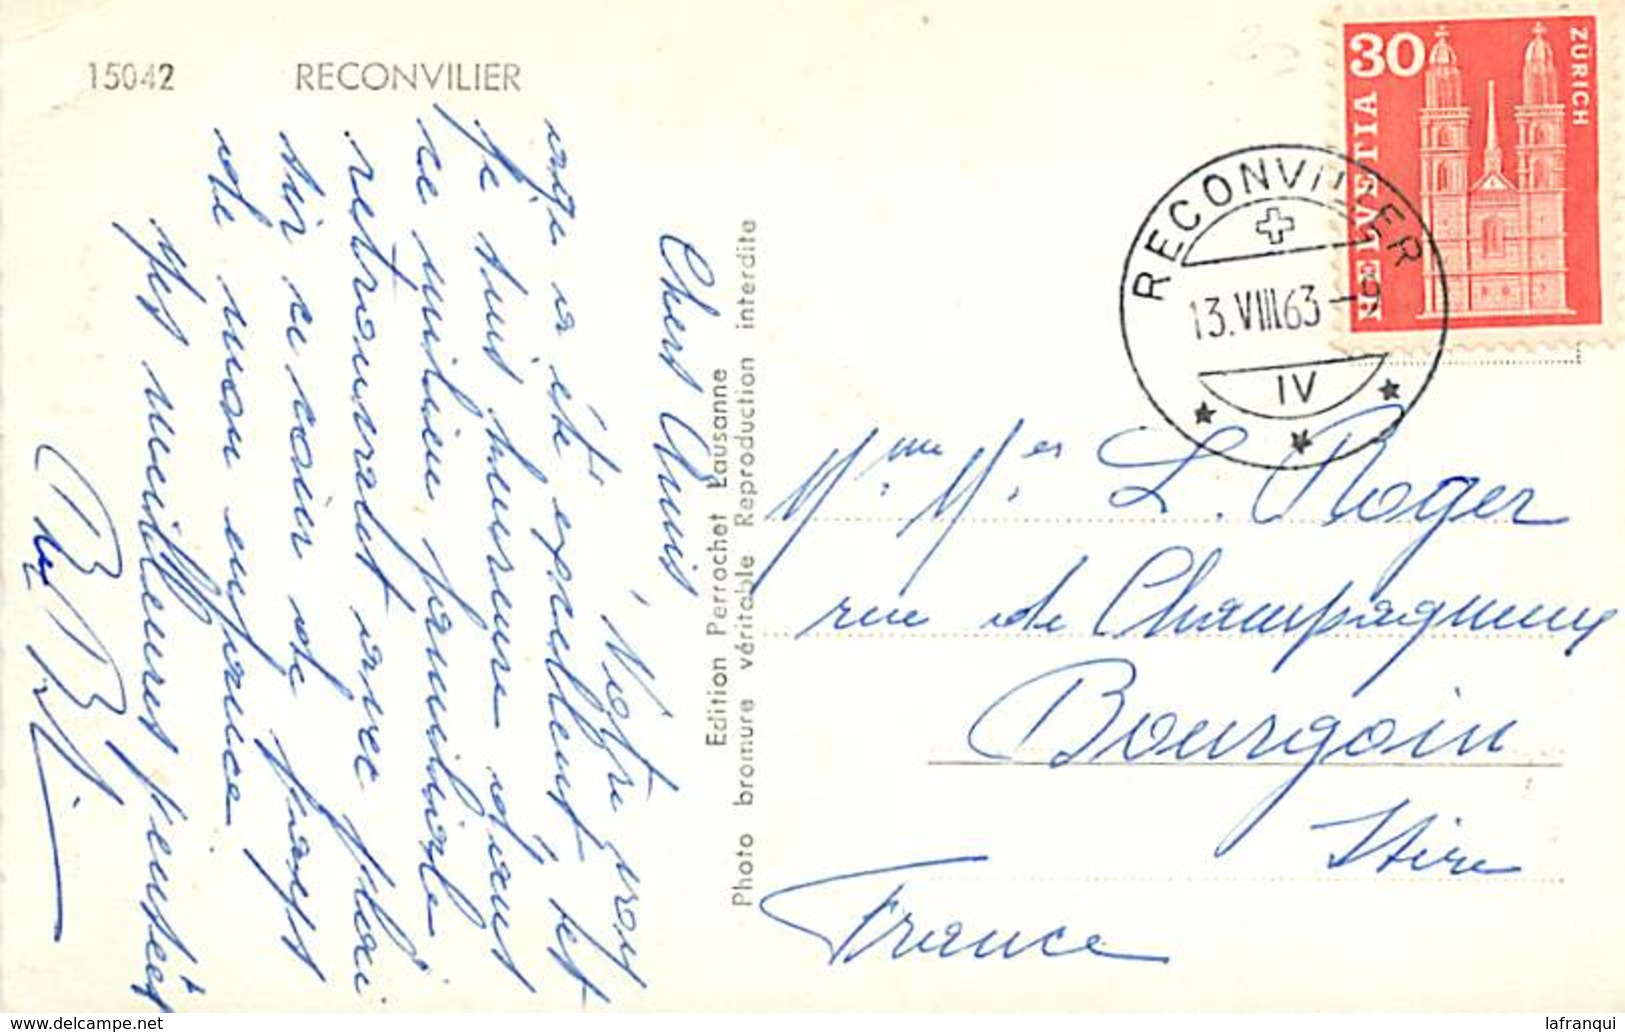 15042 RECONVILIER
Chers Amis
Notre voyage
a été excellent, et
je suis heureux
ce milieu familiale
retrouvait avec plai
sir ce coin de
de mon enfance
Mes meilleures pensées
Edition Perrochet Lausanne
Photo bromure véritable Reproduction interdite
30
HELVETIA
ZÜRICH
RECONVILIER
13.VIII.63-9
IV
Mme. Mr. L. Roger
rue de Champagneux
Bourgoin
Isère
France
www.delcampe.net
lafranqui